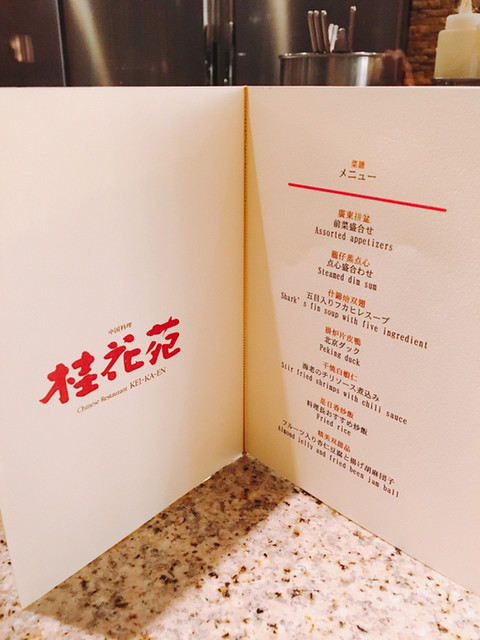 中国料理
桂花苑
Chinese Restaurant KEI-KA-EN
菜譜
メニュー
廣東拼盆
前菜盛合せ
Assorted appetizers
籠仔蒸点心
点心盛合わせ
Steamed dim sum
什錦燴双翅
五目入りフカヒレスープ
Shark's fin soup with five ingredient
掛炉片皮鴨
北京ダック
Peking duck
干焼白蝦仁
海老のチリソース煮込み
Stir fried shrimps with chili sauce
是日香炒飯
料理長おすすめ炒飯
Fried rice
精美双甜品
フルーツ入り杏仁豆腐と揚げ胡麻団子
Almond jelly and fried been jam ball